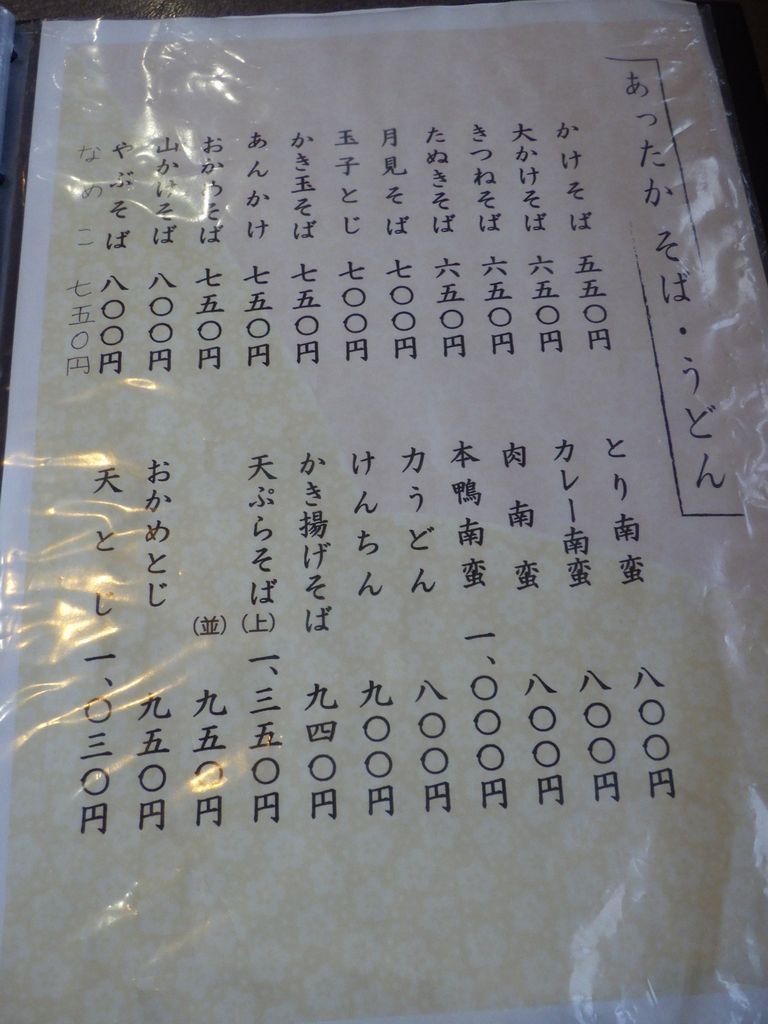 あったか そば・うどん
かけそば 五五〇円
大かけそば 六五〇円
きつねそば 六五〇円
たぬきそば 六五〇円
月見そば 七〇〇円
玉子とじ 七〇〇円
かき玉そば 七五〇円
あんかけ 七五〇円
おかめそば 七五〇円
山かけそば 八〇〇円
やぶそば 八〇〇円
なめこ 七五〇円
とり南蛮 八〇〇円
カレー南蛮 八〇〇円
肉南蛮 八〇〇円
本鴨南蛮 一、〇〇〇円
力うどん 八〇〇円
けんちん 九〇〇円
かき揚げそば 九四〇円
天ぷらそば (上) 一、三五〇円
(並) 九五〇円
おかめとじ 九五〇円
天とじ 一、〇三〇円